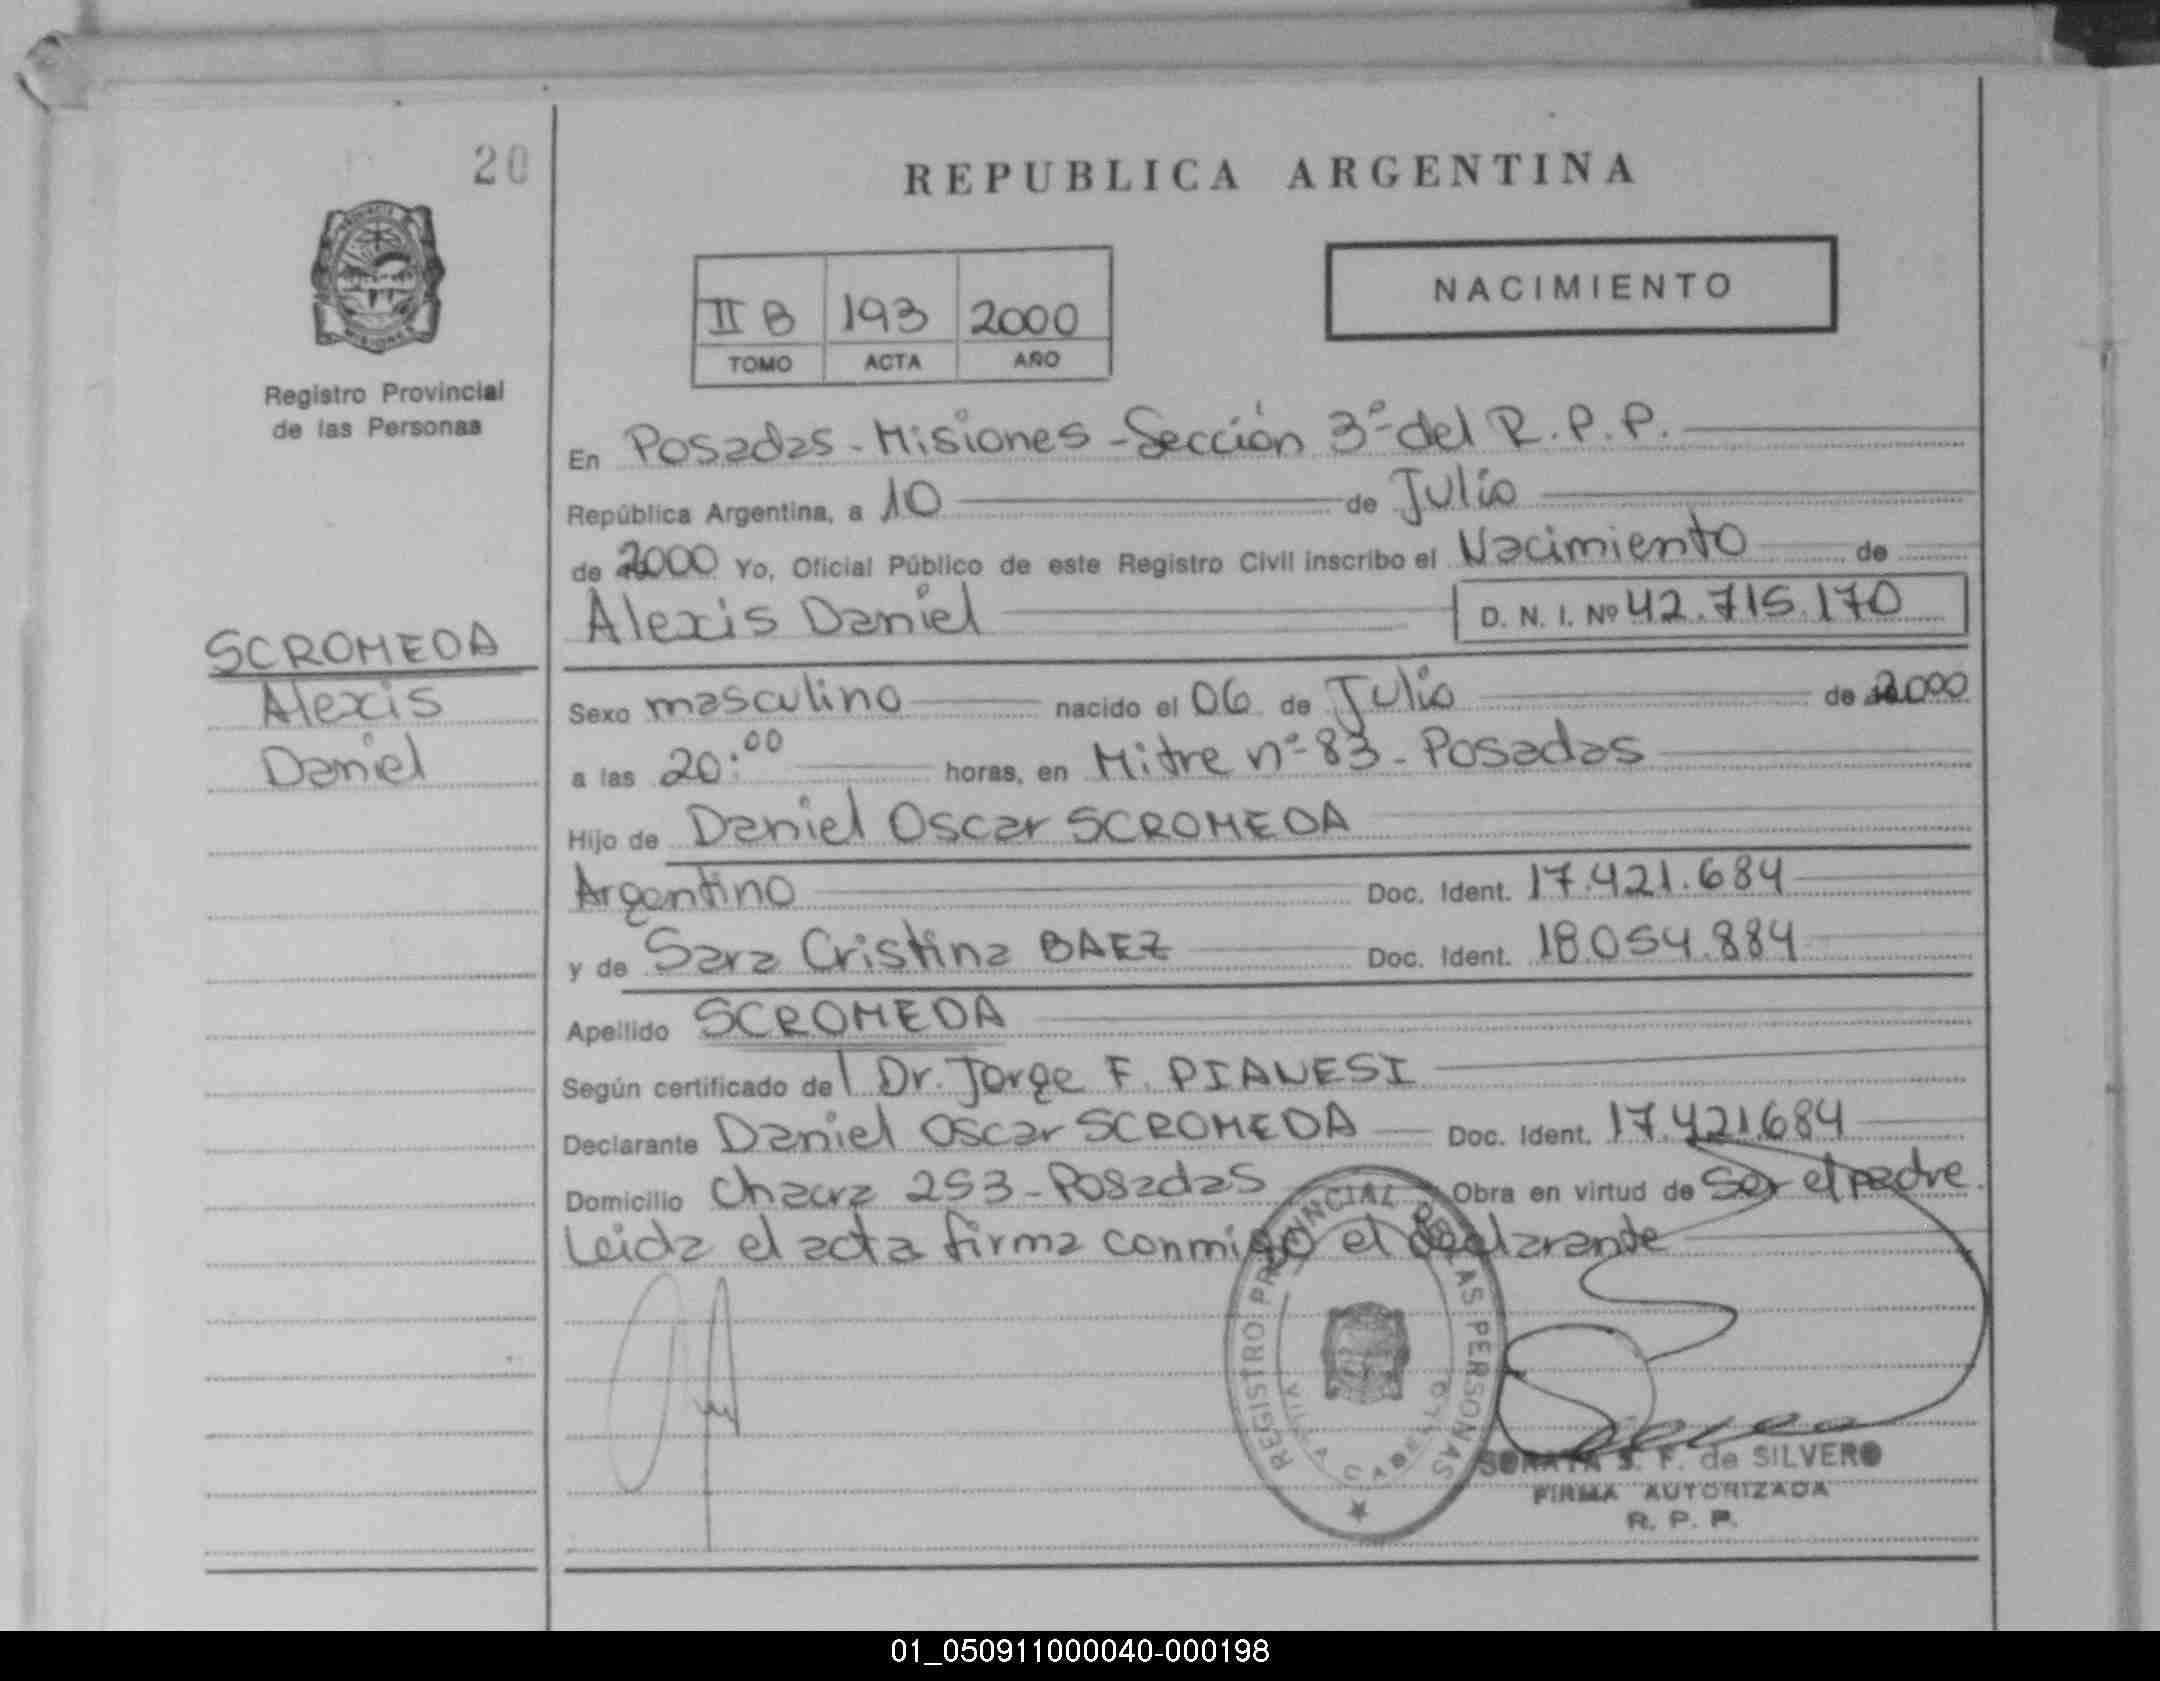 20
REPUBLICA ARGENTINA
NACIMIENTO
II B 193 2000
TOMO ACTA AÑO
Registro Provincial
de las Personas
En Posadas - Misiones - Sección 3º del R. P. P.
República Argentina, a 10 de Julio
de 2000 Yo, Oficial Público de este Registro Civil inscribo el Nacimiento de
Alexis Daniel D. N. I. Nº 42.715.170
SCROMEDA
Alexis
Daniel
Sexo masculino nacido el 06 de Julio de 2000
a las 20:00 horas, en Mitre nº 83 - Posadas
Hijo de Daniel Oscar SCROMEDA
Argentino Doc. Ident. 17.421.684
y de Sara Cristina BAEZ Doc. Ident. 18.054.884
Apellido SCROMEDA
Según certificado del Dr. Jorge F. PIANESI
Declarante Daniel Oscar SCROMEDA Doc. Ident. 17.421.684
Domicilio Chacra 253 - Posadas Obra en virtud de Ser el padre.
Leida el acta firma conmigo el declarante
REGISTRO PROVINCIAL DE LAS PERSONAS
VILLA CABELLO
SORAYA S. F. de SILVERO
FIRMA AUTORIZADA
R. P. P.
01_050911000040-000198